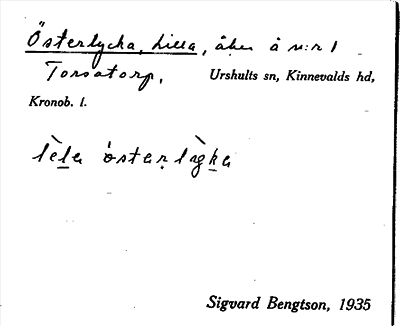 Österlycka, Lilla, åker å n:r 1
Torsatorp, Urshults sn, Kinnevalds hd,
Kronob. l.
lèla östar lỳka
Sigvard Bengtson, 1935